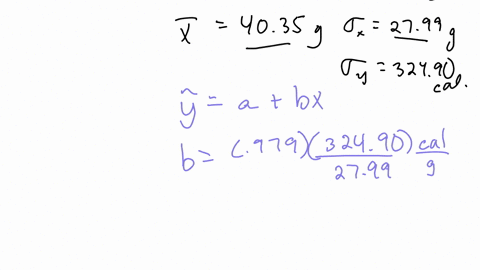 x̅ = 40.35 g σx = 27.99 g
σy = 324.90 cal.
ỹ = a + bx
b = (.979)(324.90) cal
27.99 g